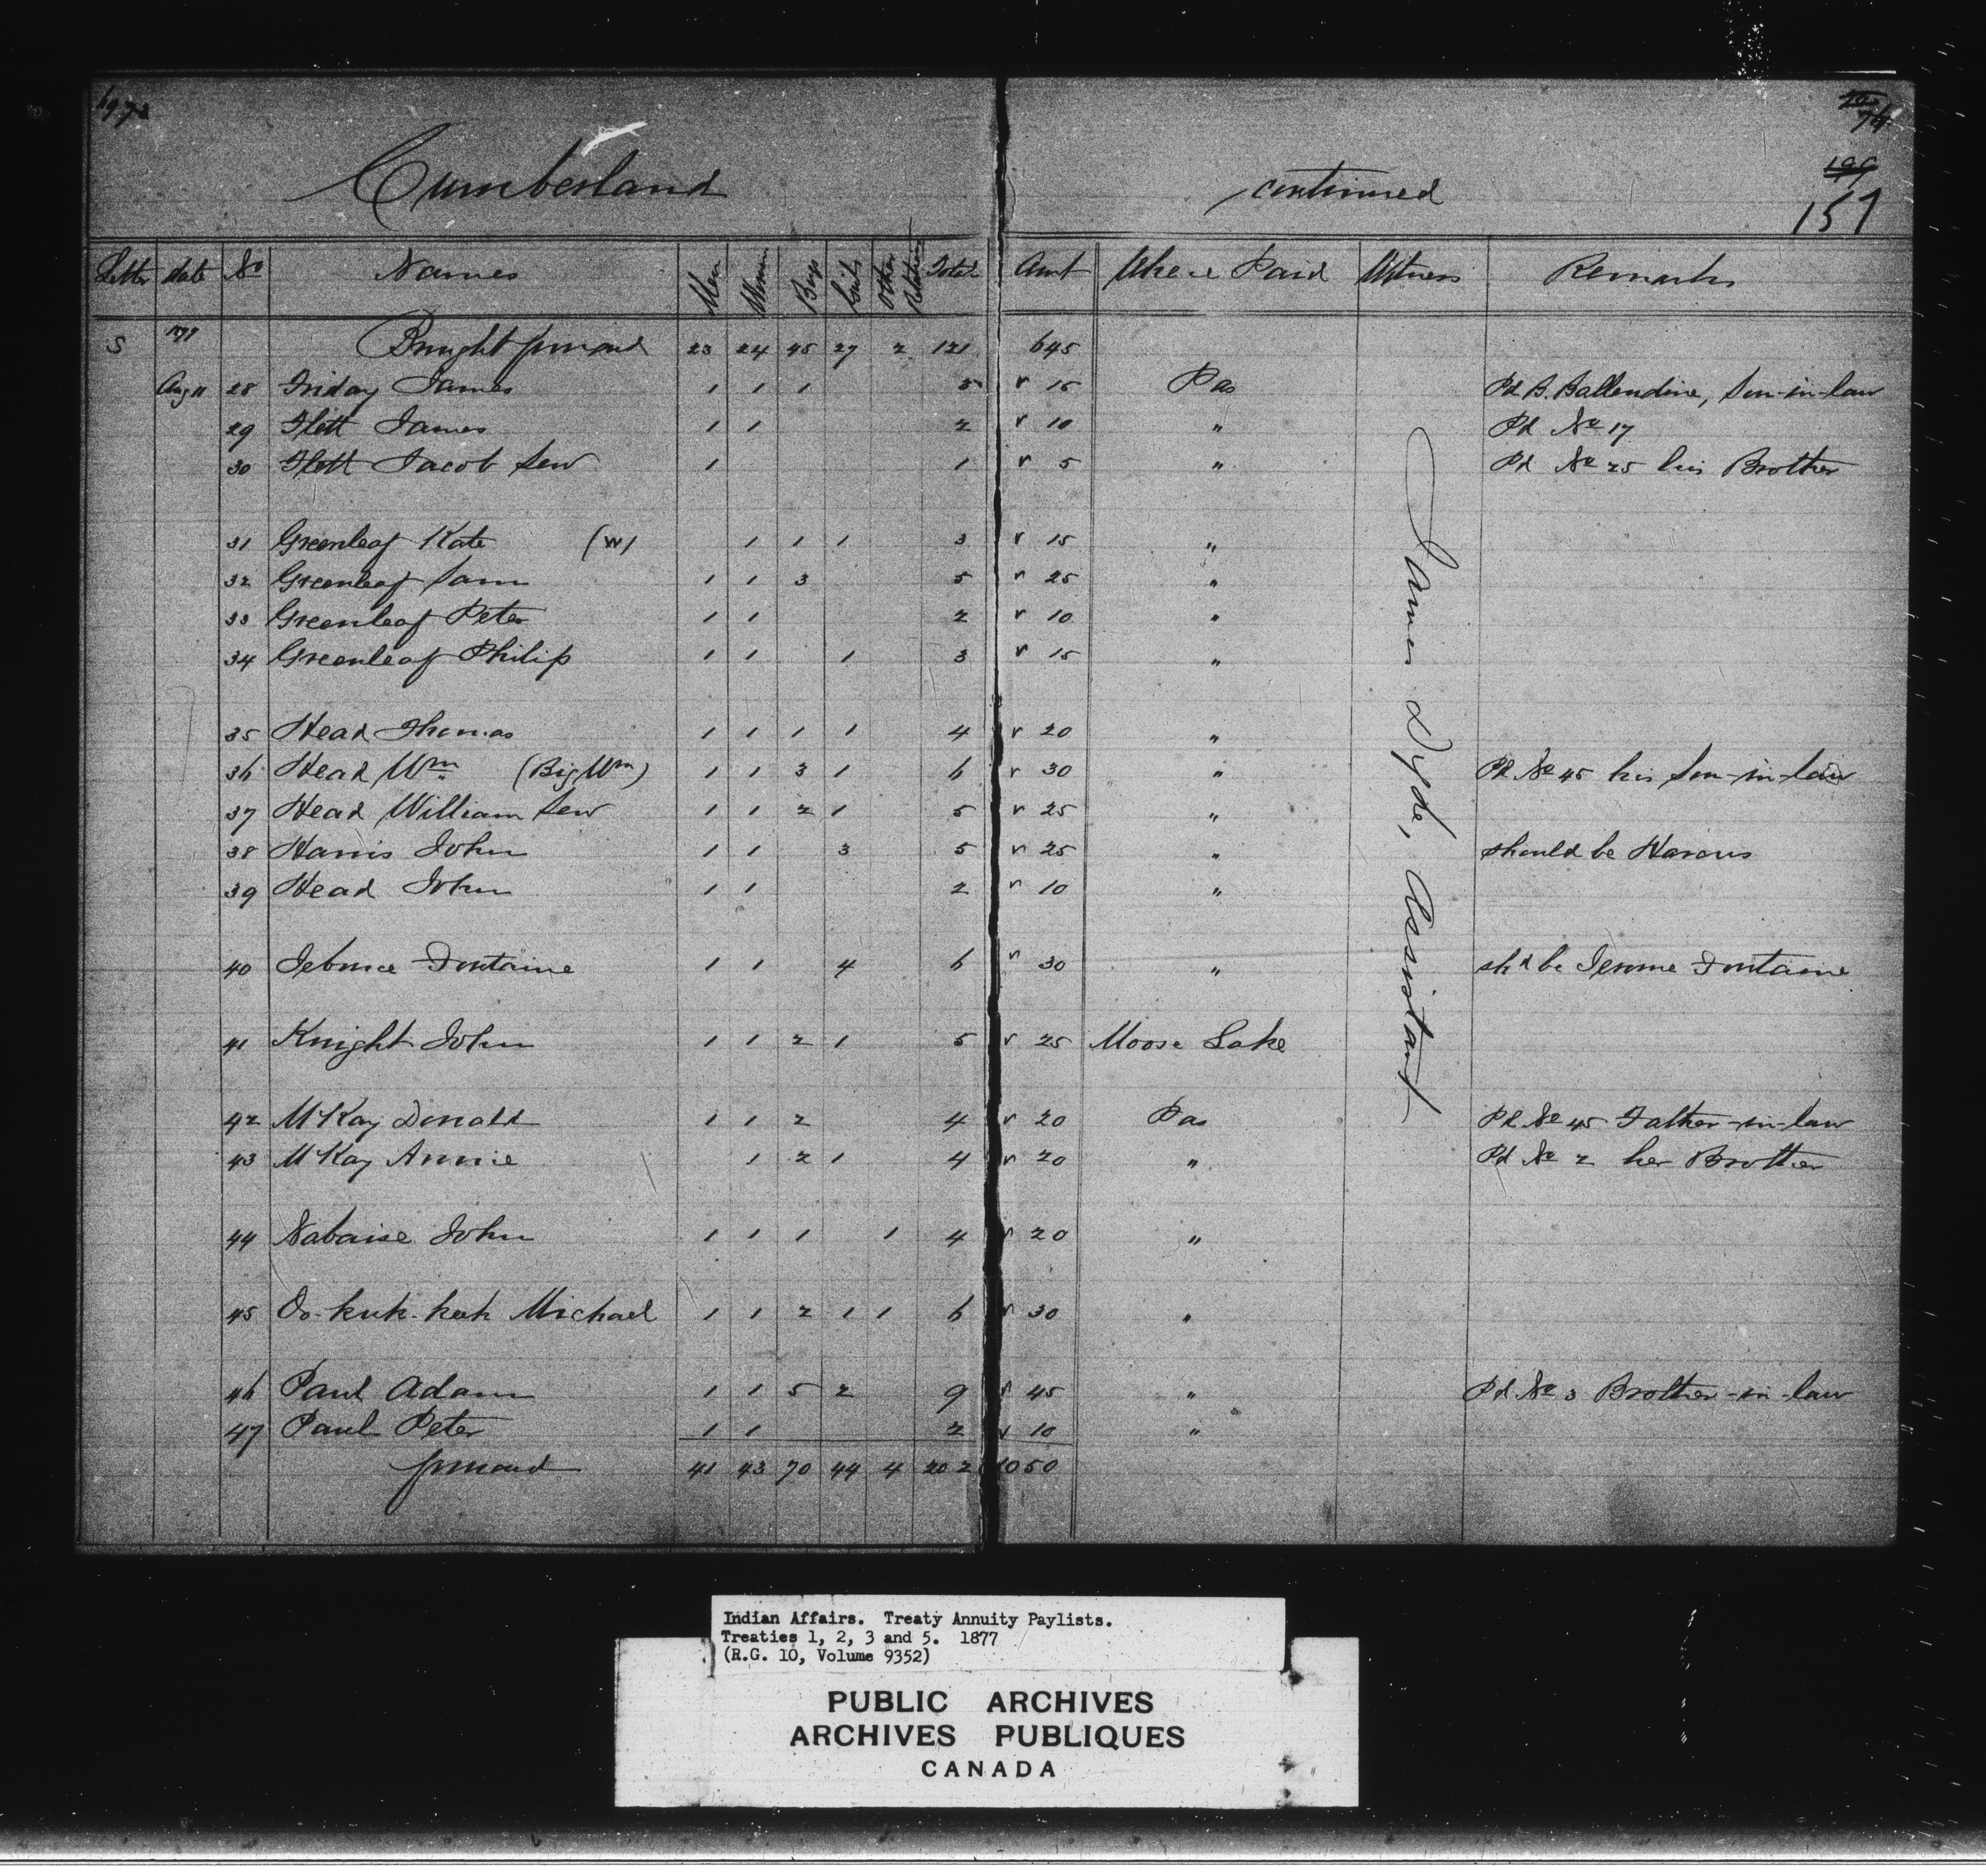 Cumberland continued
157
Letter date No Names Men Women Boys Girls Other Relatives Total Amt Where Paid Witness Remarks
S Brought forward 23 24 45 27 2 121 645
Aug 11 28 Friday James 1 1 1 3 15 Pas Pd B. Ballendine, Son-in-law
29 Flett James 1 1 2 10 " Pd No 17
30 Flett Jacob Senr 1 1 5 " Pd No 25 his Brother
31 Greenleaf Kate (W) 1 1 1 3 15 "
32 Greenleaf Sam 1 1 3 5 25 "
33 Greenleaf Peter 1 1 2 10 "
34 Greenleaf Philip 1 1 1 3 15 "
35 Head Thomas 1 1 1 1 4 20 "
36 Head Wm (Big Wm) 1 1 3 1 6 30 " Pd No 45 his Son-in-law
37 Head William Senr 1 1 2 1 5 25 "
38 Harris John 1 1 3 5 25 " should be Harcus
39 Head John 1 1 2 10 "
40 Fontaine 1 1 4 6 30 " shd be Jerome Fontaine
41 Knight John 1 1 2 1 5 25 Moose Lake
42 McKay Donald 1 1 2 4 20 Pas Pd No 45 Father-in-law
43 McKay Annie 1 2 1 4 20 " Pd No 2 her Brother
44 Nabaise John 1 1 1 1 4 20 "
45 Oo-kuk-kek Michael 1 1 2 1 1 6 30 "
46 Paul Adam 1 1 5 2 9 45 " Pd No 3 Brother-in-law
47 Paul Peter 1 1 2 10 "
forward 41 43 70 44 4 202 1050
James Dyde, Assistant
Indian Affairs. Treaty Annuity Paylists.
Treaties 1, 2, 3 and 5. 1877
(R.G. 10, Volume 9352)
PUBLIC ARCHIVES
ARCHIVES PUBLIQUES
CANADA